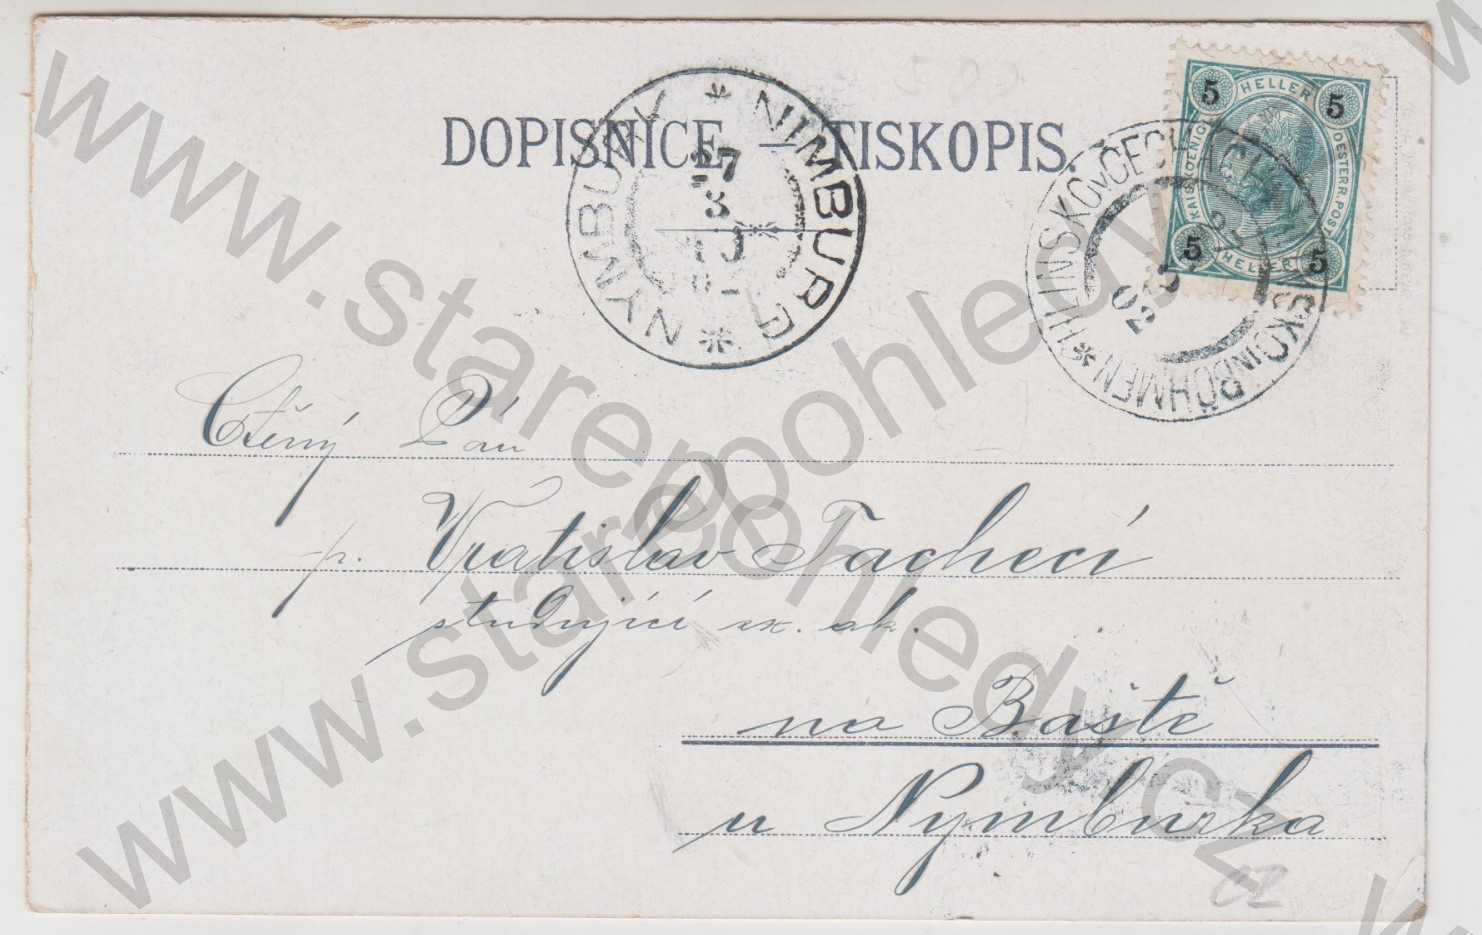 DOPISNICE – TISKOPIS.
* NIMBURG * NYMBURK
27
3
5
HELLER
5
KAIS. KOENIGL.
OESTERR. POST
5
HELLER
5
HLINSKO v ČECHÁCH
HLINSKO IN BÖHMEN *
02
Ctěný Pán
p. Vratislav Tachecí
studující
na Baště
u Nymburka
02
www.starepohledy.cz
www.starepohledy.cz